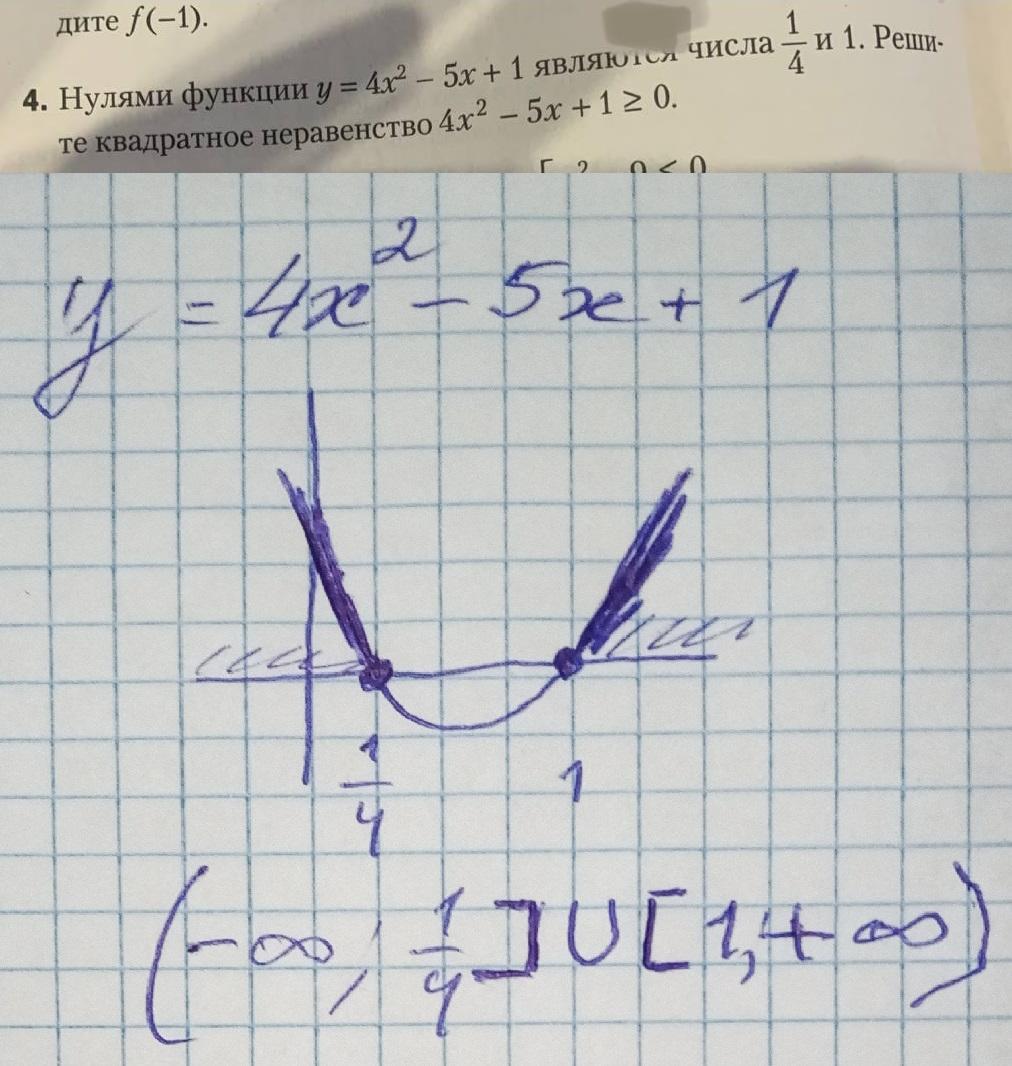 дите f(−1).
4. Нулями функции y = 4x² − 5x + 1 являются числа 1/4 и 1. Реши-
те квадратное неравенство 4x² − 5x + 1 ≥ 0.
y = 4x² − 5x + 1
1/4 1
(−∞, 1/4] ∪ [1, +∞)